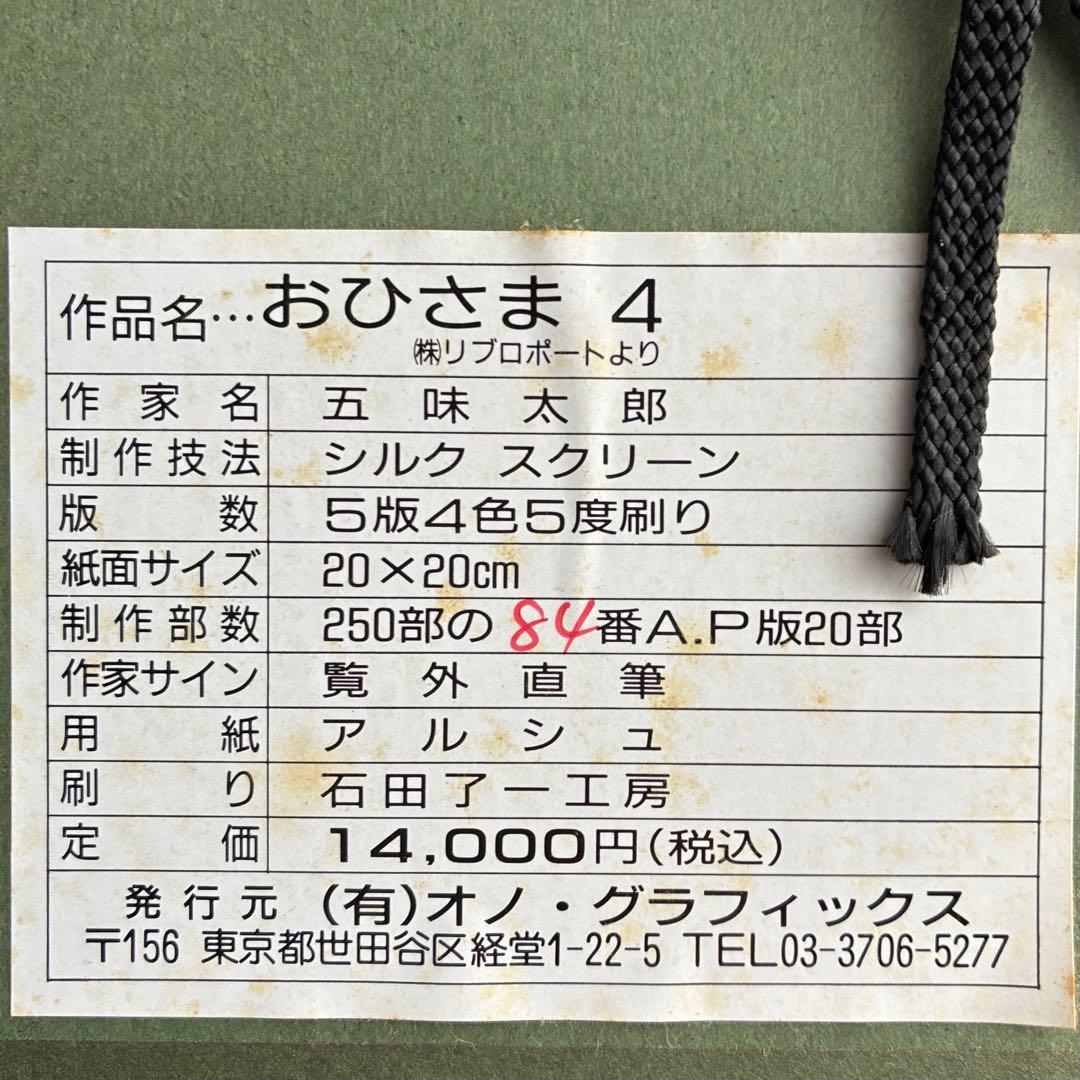 作品名…おひさま 4
㈱リブロポートより
作家名 五味太郎
制作技法 シルク スクリーン
版数 5版4色5度刷り
紙面サイズ 20×20cm
制作部数 250部の 84番A.P版20部
作家サイン 覧外直筆
用紙 アルシュ
刷り 石田了一工房
定価 14,000円(税込)
発行元 (有)オノ・グラフィックス
〒156 東京都世田谷区経堂1-22-5 TEL03-3706-5277